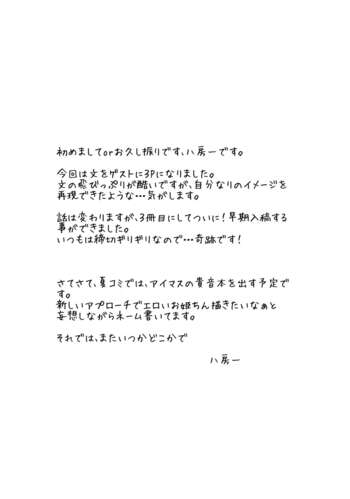 初めましてorお久し振りです、八房一です。
今回は文をゲストに3Pになりました。
文の飛びっぷりが酷いですが、自分なりのイメージを
再現できたような…気がします。
話は変わりますが、3冊目にしてついに!早期入稿する
事ができました。
いつもは締切ギリギリなので…奇跡です!
さてさて、夏コミでは、アイマスの貴音本を出す予定で
す。
新しいアプローチでエロいお姫ちん描きたいなぁと
妄想しながらネーム書いてます。
それでは、またいつかどこかで
八房一